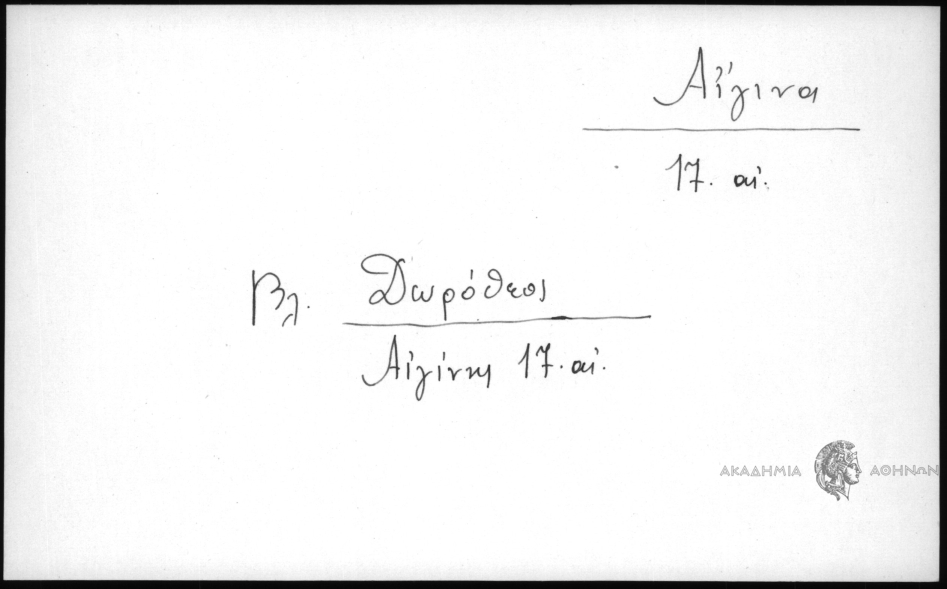 Αἴγινα
17. αἰ.
Βλ. Δωρόθεος
Αἰγίνης 17. αἰ.
ΑΚΑΔΗΜΙΑ ΑΘΗΝΩΝ